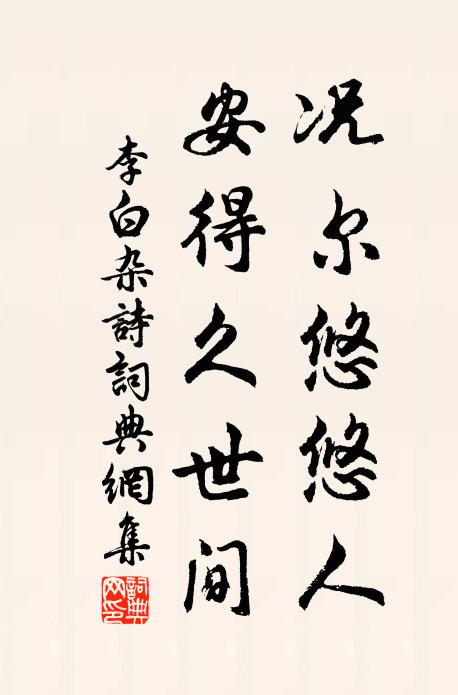 况尔悠悠人
安得久世间
李白杂詩詞典網集
詞典网印